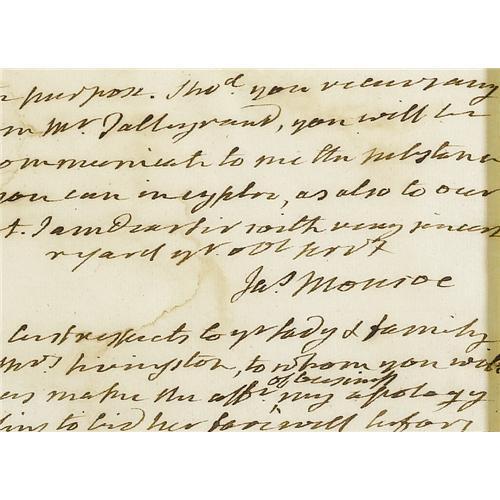 purpose. Shod you receive any
Mr Talleyrand, you will be
communicate to me the substance
you can in cypher, as also to our
t. I am Dear Sir with very sincere
regard yr. obt servt
Jas Monroe
best respects to yr lady & family
Mrs Livingston, to whom you will
make the offr my apology
of business
to bid her farewell before